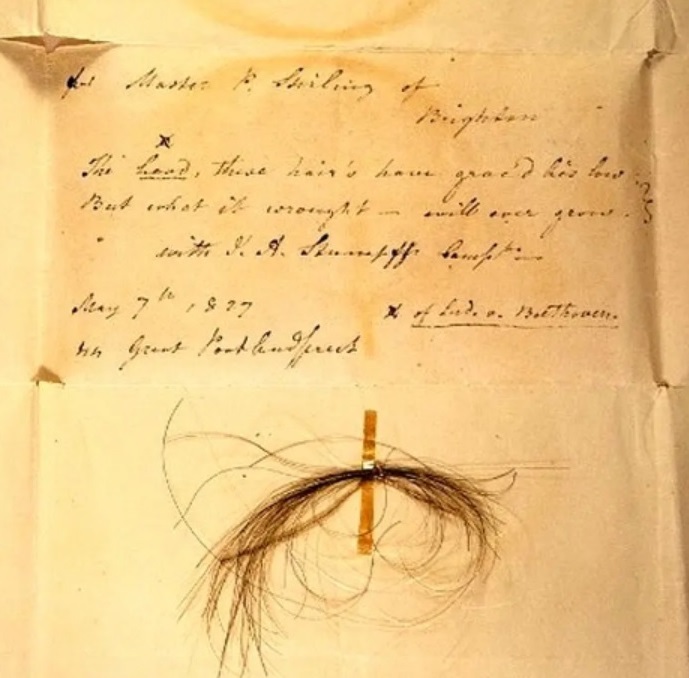 for Master P. Stirling of
Brighton
x
The head, these hair's have grac'd lies low
But what it wrought — will ever grow.
with J. A. Stumpffs Compts
May 7th 1827 x of Lud. v. Beethoven.
44 Great Portland Street